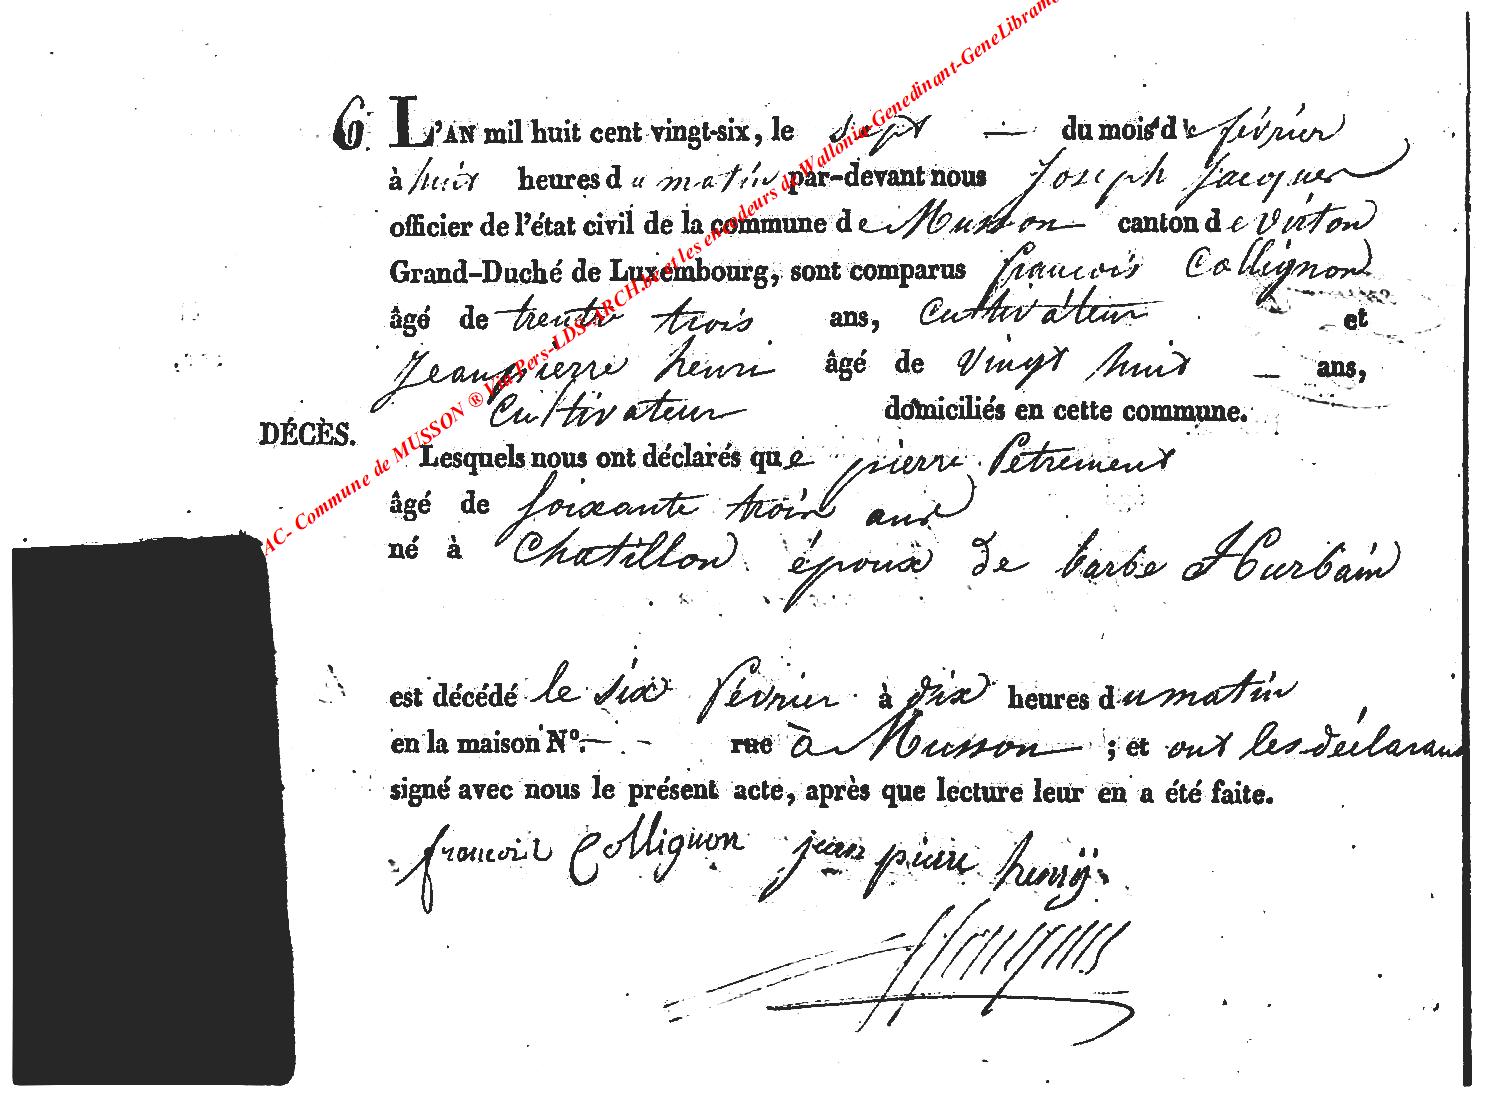 AC- Commune de MUSSON ® Via Pers-LDS-ARCH.be et les encodeurs de Wallonia-Genedinant-GeneLibramo
6. L'AN mil huit cent vingt-six, le sept — du mois de février
à huit heures du matin par-devant nous Joseph Jacques
officier de l'état civil de la commune de Musson canton de Virton
Grand-Duché de Luxembourg, sont comparus francois Collignon
âgé de trente trois ans, Cultivateur et
Jeanpierre henri âgé de vingt huit — ans,
Cultivateur domiciliés en cette commune.
DÉCÈS.
Lesquels nous ont déclarés que pierre Petrement
âgé de soixante trois ans
né à Chatillon époux de barbe Hurbain
est décédé le six février à dix heures du matin
en la maison N°. — - rue à Musson ; et ont les déclarans
signé avec nous le présent acte, après que lecture leur en a été faite.
francois Collignon jean pierre henry